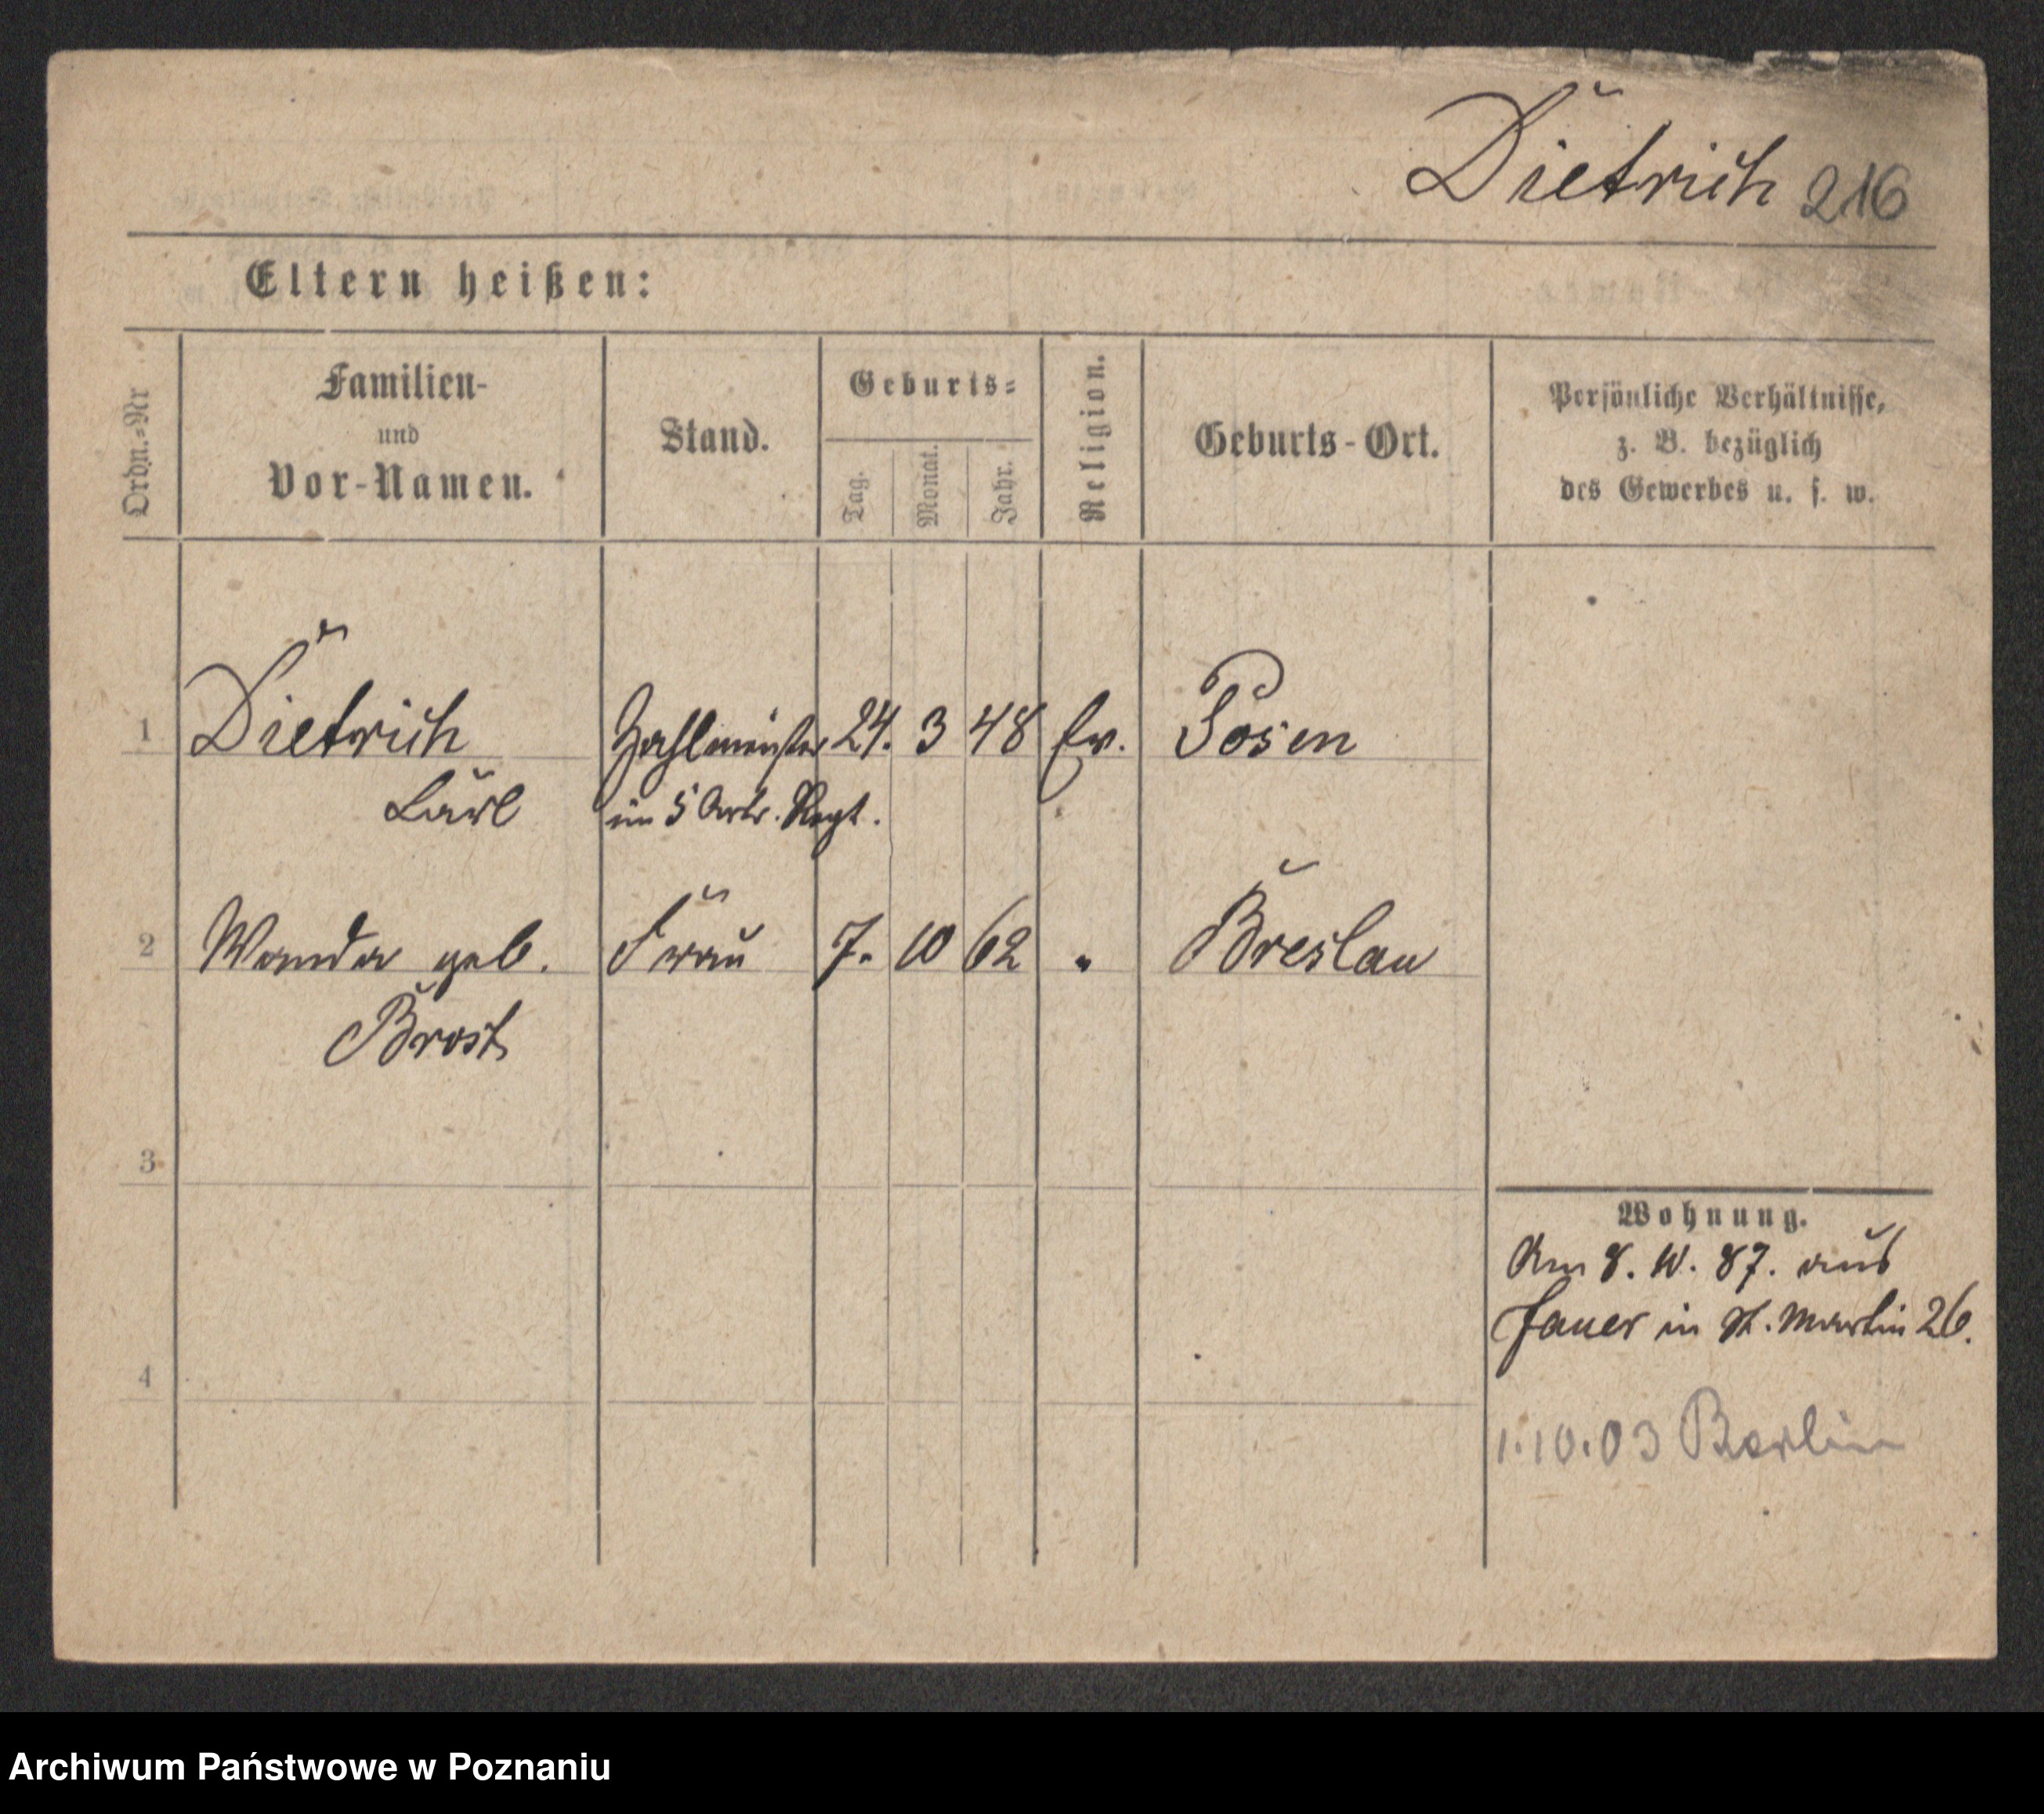 Dietrich 216
Eltern heißen:
Ordn.=Nr
Familien-
und
Vor-Namen.
Stand.
Geburts=
Tag.
Monat.
Jahr.
Religion.
Geburts-Ort.
Persönliche Verhältnisse,
z. B. bezüglich
des Gewerbes u. s. w.
1 Dietrich Zahlmeister 24. 3 48 Ev. Posen
Carl im 5 Artr. Regt.
2 Wanda geb. Frau 7. 10 62 " Breslau
Brost
3
4
Wohnung.
Am 8. 10. 87. aus
Jauer in St. Martin 26.
1.10.03 Berlin
Archiwum Państwowe w Poznaniu